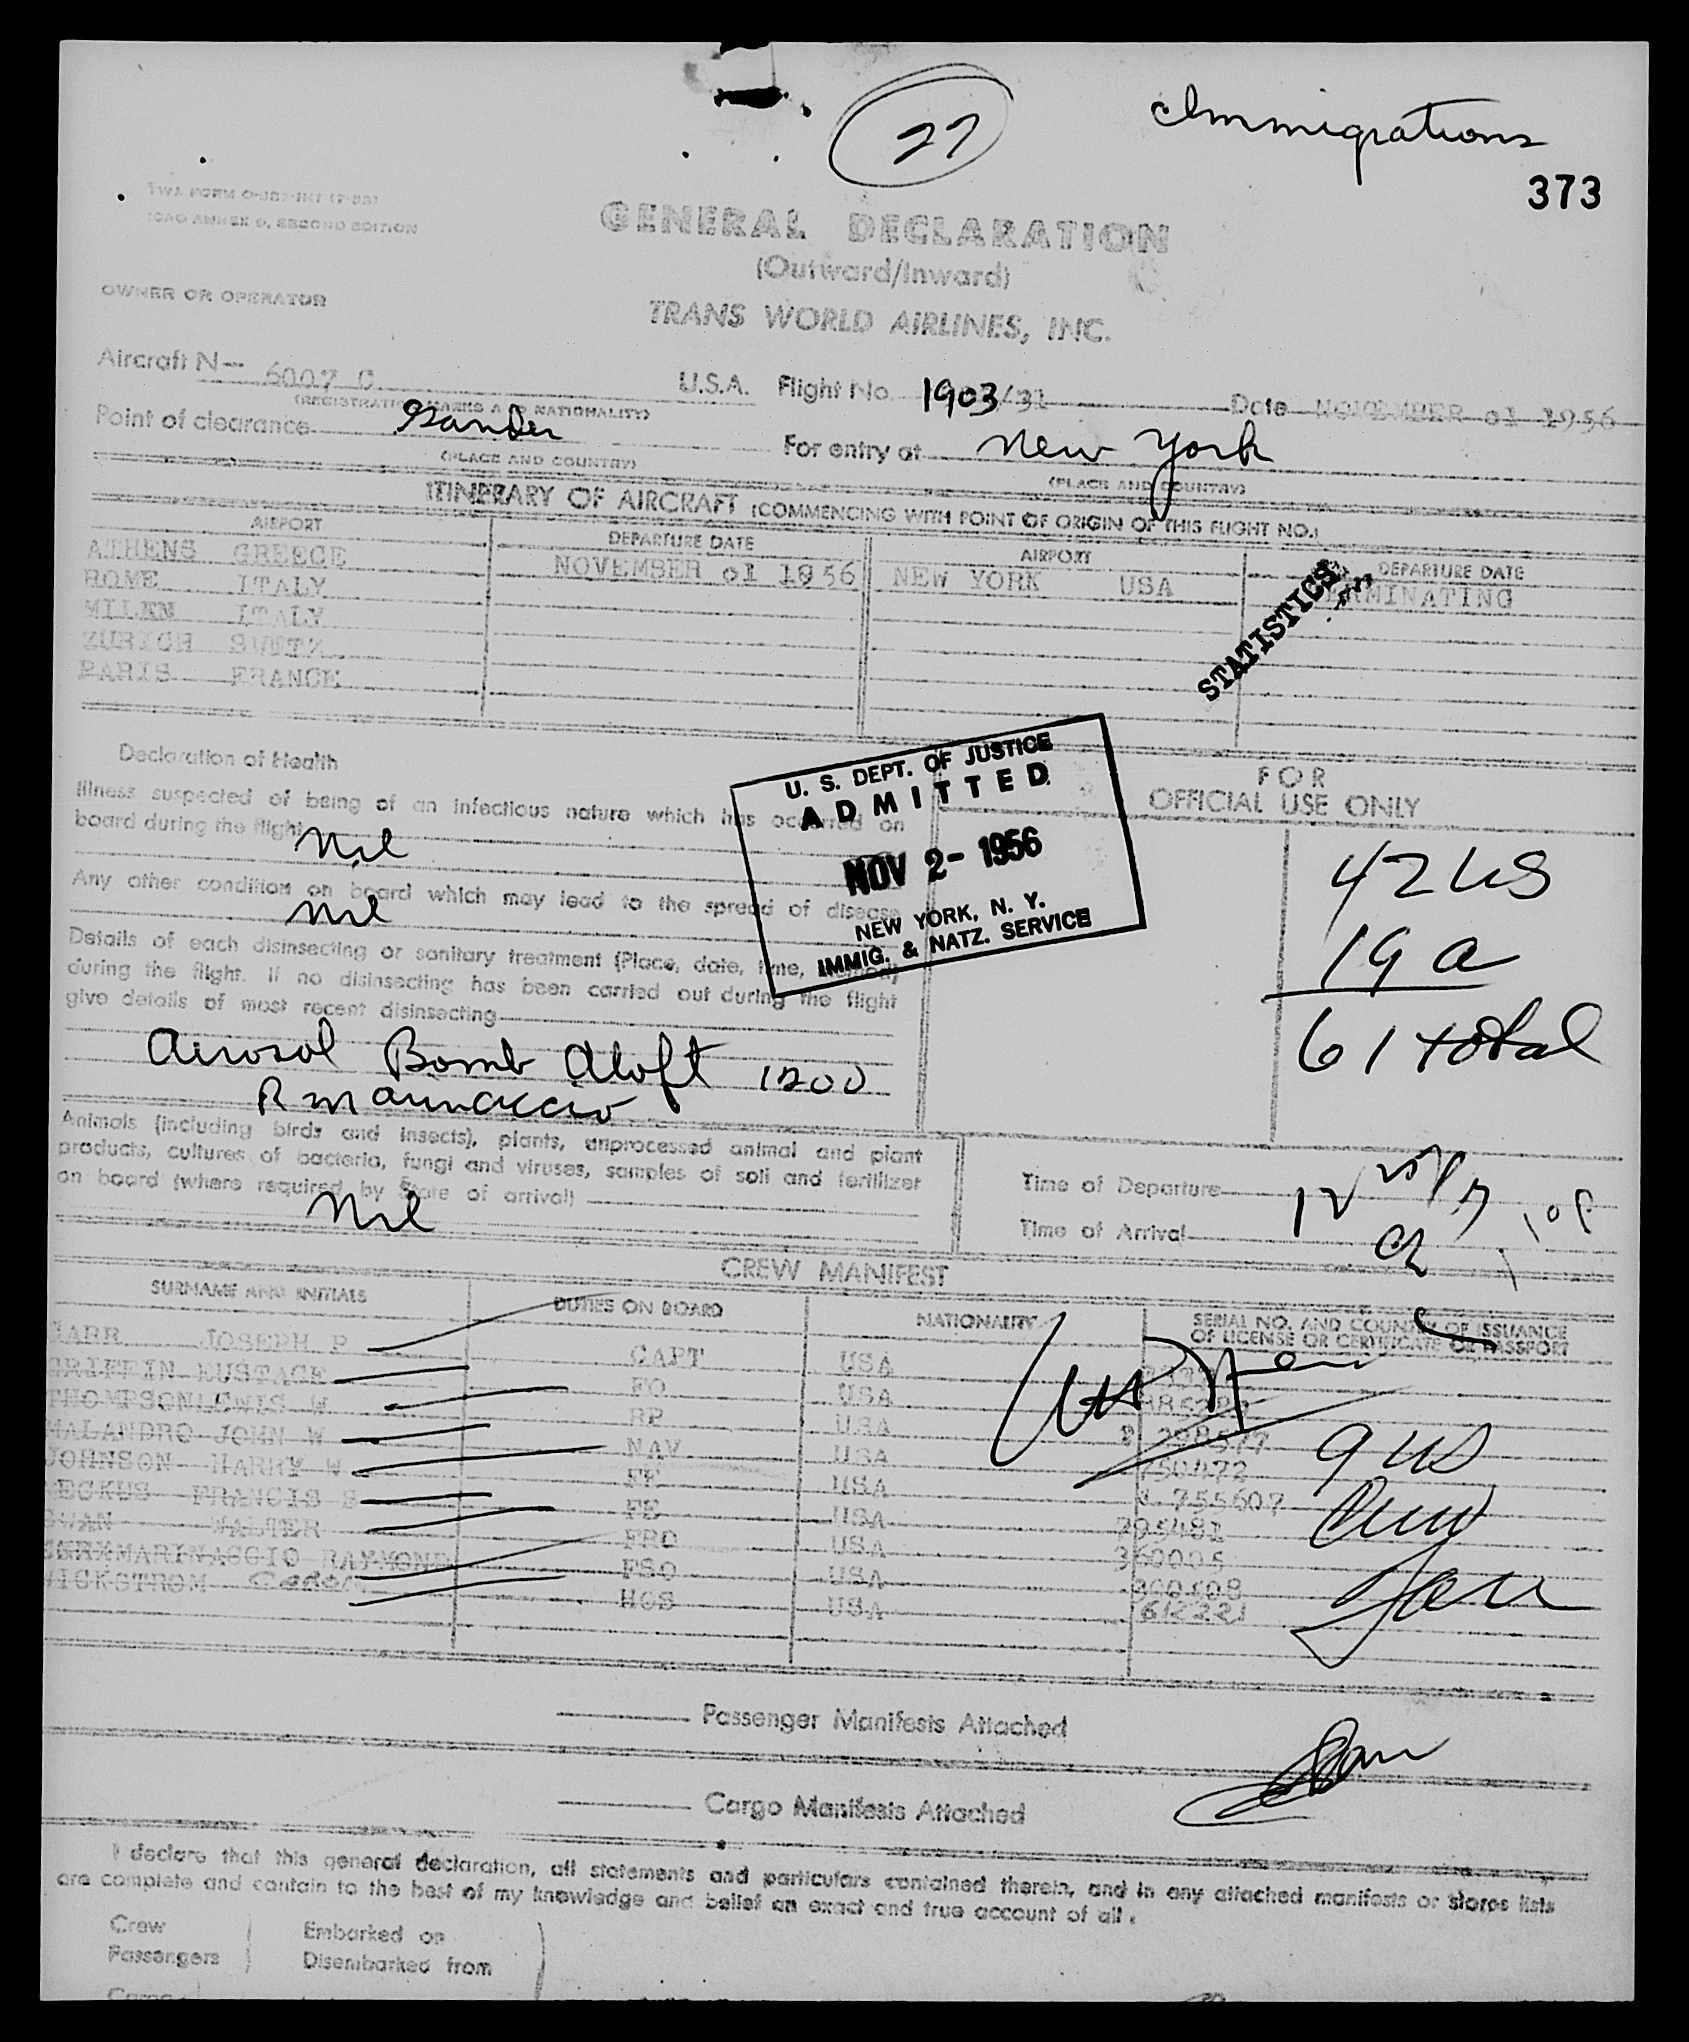 27
Immigrations
373
ICAO ANNEX 9, SECOND EDITION
GENERAL DECLARATION
(Outward/Inward)
OWNER OR OPERATOR
TRANS WORLD AIRLINES, INC.
Aircraft N— 6007 C U.S.A. Flight No. 1903/31 Date NOVEMBER 01 1956
(REGISTRATION MARKS AND NATIONALITY)
Point of clearance Gander For entry at New York
(PLACE AND COUNTRY) (PLACE AND COUNTRY)
ITINERARY OF AIRCRAFT (COMMENCING WITH POINT OF ORIGIN OF THIS FLIGHT NO.)
AIRPORT DEPARTURE DATE AIRPORT DEPARTURE DATE
ATHENS GREECE NOVEMBER 01 1956 NEW YORK USA TERMINATING
ROME ITALY
MILAN ITALY
ZURICH SWITZ
PARIS FRANCE
STATISTICS
Declaration of Health
Illness suspected of being of an infectious nature which has occurred on
board during the flight Nil
Any other condition on board which may lead to the spread of disease
Nil
Details of each disinsecting or sanitary treatment (Place, date, time, method)
during the flight. If no disinsecting has been carried out during the flight
give details of most recent disinsecting
Aerosol Bomb Aloft 1200
R Marinaccio
U. S. DEPT. OF JUSTICE
ADMITTED
NOV 2- 1956
NEW YORK, N. Y.
IMMIG. & NATZ. SERVICE
FOR
OFFICIAL USE ONLY
42 US
19 A
61 total
Animals (including birds and insects), plants, unprocessed animal and plant
products, cultures of bacteria, fungi and viruses, samples of soil and fertilizer
on board (where required by State of arrival)
Nil
Time of Departure
Time of Arrival
CREW MANIFEST
SURNAME AND INITIALS DUTIES ON BOARD NATIONALITY SERIAL NO. AND COUNTRY OF ISSUANCE
OF LICENSE OR CERTIFICATE OR PASSPORT
JOSEPH P CAPT USA
GRIFFIN EUSTACE FO USA
THOMPSON LEWIS W RP USA
MALANDRO JOHN W NAV USA
JOHNSON HARRY W FE USA 755607
FRANCIS FE USA 705481
WALTER FRO USA 360005
MARINACCIO RAYMOND FSO USA
WICKSTROM HOS USA 612221
9 US
Passenger Manifests Attached
Cargo Manifests Attached
I declare that this general declaration, all statements and particulars contained therein, and in any attached manifests or stores lists
are complete and contain to the best of my knowledge and belief an exact and true account of all.
Crew Embarked on
Passengers Disembarked from
Cargo